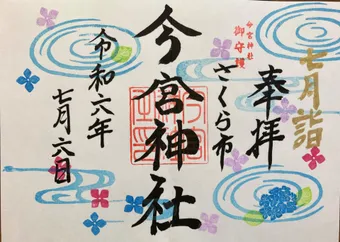 七月詣
奉拝
今宮神社
御守護
さくら市
今宮神社
令和六年
七月六日